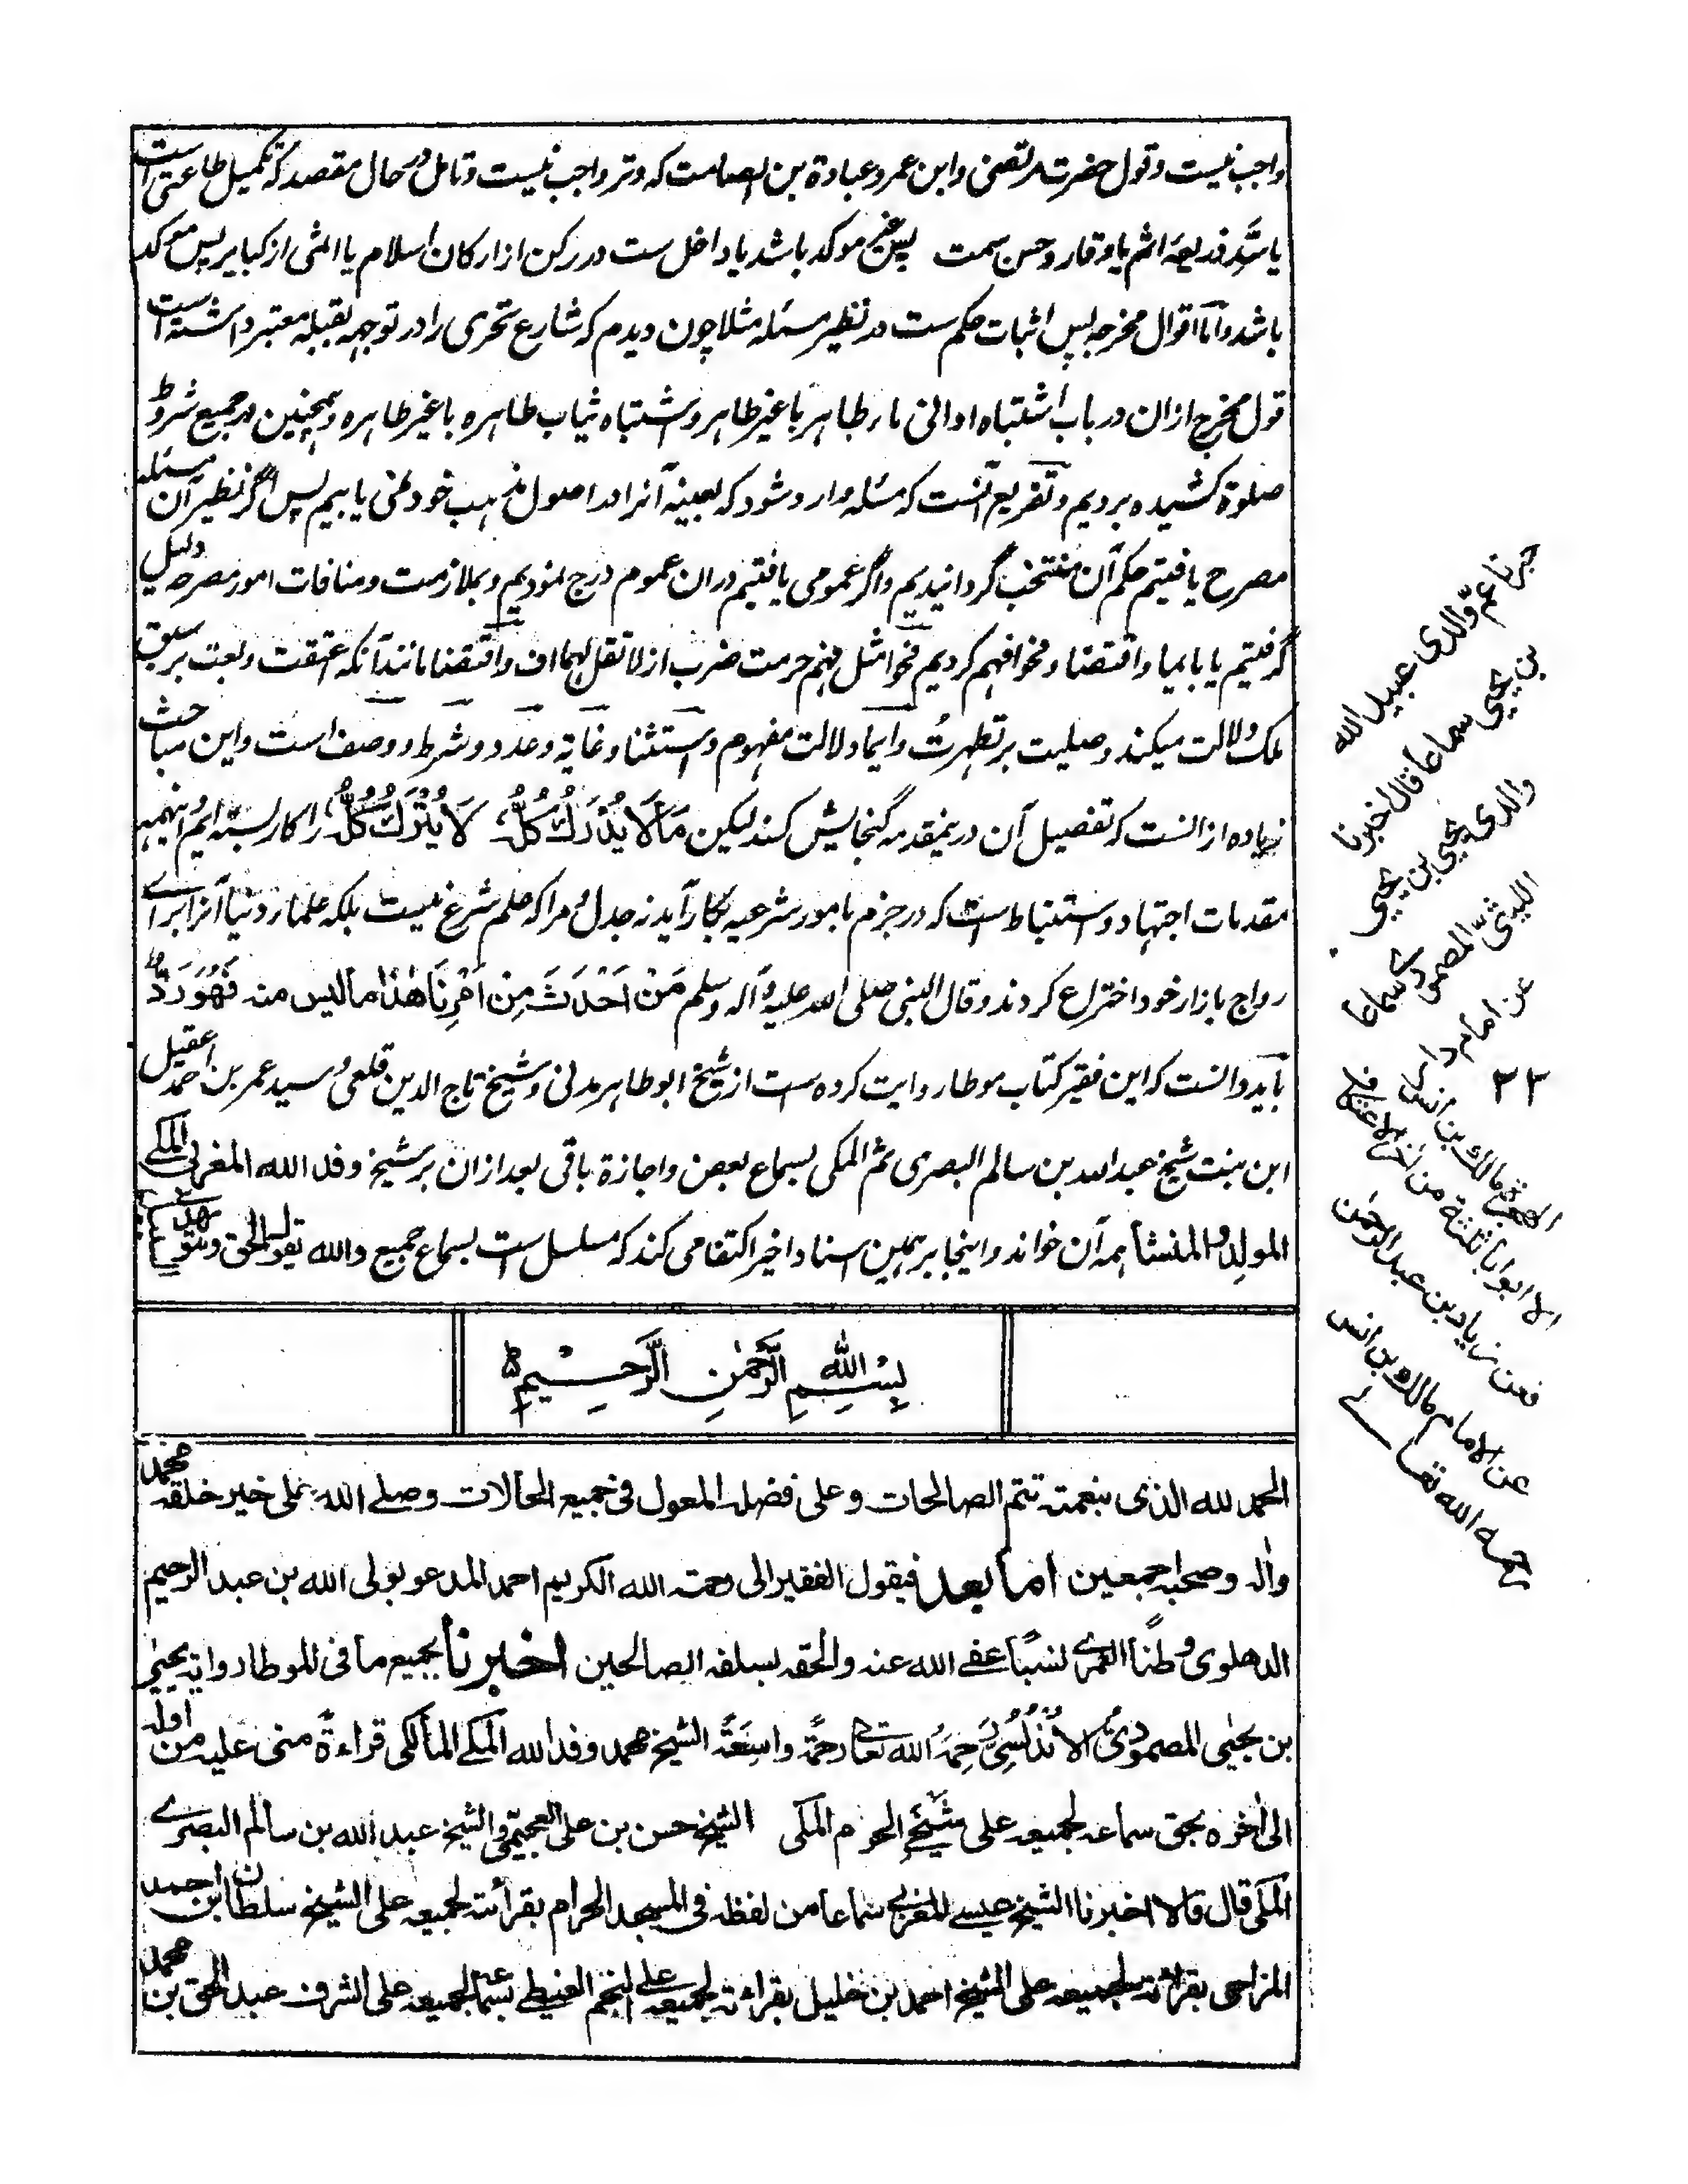 واجب نیست وقول حضرت مرتضی وابن عمر وعبادة بن الصامت که وتر واجب نیست وتامل در حال مقصد که تکمیل طاعتی است
یا سَدِّ ذریعهٔ اثم یا وقار وحسن سمت پس غیر موکد باشد یا داخل ست در رکن از ارکان اسلام یا اثمی از کبایر پس موکد
باشد واما اقوال مخرجه پس اثبات حکم ست در نظیر مسئله مثلا چون دیدم که شارع تحری را در توجه بقبله معتبر داشته است
قول مخرج ازان در باب اشتباه اوانی ماء طاهر با غیر طاهر واشتباه ثیاب طاهره با غیر طاهره وهمچنین در جمیع شروط
صلوة کشیده بردیم وتفریع آنست که مسئله وارد شود که بعینه آنرا در اصول مذهب خود نمی یابیم پس اگر نظیر آن مسئله
مصرح یافتیم حکم آن منتخب گردانیدیم واگر عمومی یافتیم دران عموم درج نمودیم وبملازمت ومنافات امور مصرحه دلیل
گرفتیم یا بایما واقتضا وفحوا فهم کردیم فحوا مثل فهم حرمت ضرب از لا تقل لهما اف واقتضا مانند آنکه اعتقت وبعت بر سبق
ملک دلالت میکند وصلیت بر تطهرتُ وایما دلالت مفهوم واستثنا وغایة وعدد وشرط ووصف است واین مباحث
زیاده ازانست که تفصیل آن درینمقدمه گنجایش کند لیکن مَا لَا یُدْرَكُ كُلُّهُ لَا یُتْرَكُ كُلُّهُ را کار بسته ایم اینهمه
مقدمات اجتهاد واستنباط است که در جزم بامور شرعیه بکار آید نه جدل ومرا که علم شرع نیست بلکه علماء دنیا آنرا برای
رواج بازار خود اختراع کردند وقال النبی صلی الله علیه وآله وسلم مَنْ اَحْدَثَ مِن اَمْرِنَا هٰذَا ما لیس منه فَهُوَ رَدٌّ
باید دانست که این فقیر کتاب موطا روایت کرده ست از شیخ ابو طاهر مدنی وشیخ تاج الدین قلعی وسید عمر بن احمد عقیل
ابن بنت شیخ عبد الله بن سالم البصری ثم المکی بسماع بعض واجازة باقی بعد ازان بر شیخ وفد الله المغربی المکی
المولِد والمنشأ همه آن خواند واینجا بر همین اسناد اخیر اکتفا می کند که مسلسل ست بسماع جمیع والله یقول الحق وهو یهدی السبیل
بِسْمِ اللهِ الرَّحْمٰنِ الرَّحِيْمِ
الحمد لله الذی بنعمته تتم الصالحات وعلی فضله المعول فی جمیع الحالات وصلی الله علی خیر خلقه محمد
وآله وصحبه اجمعین اما بعد فیقول الفقیر الی رحمة الله الکریم احمد المدعو بولی الله بن عبد الرحیم
الدهلوی وطنًا العمری نسبًا عفی الله عنه والحقه بسلفه الصالحین اخبرنا بجمیع ما فی الموطا روایة یحیی
بن یحیی المصمودی الاندلسی رحمه الله تعالی رحمة واسعة الشیخ محمد وفد الله المکی المالکی قراءة منی علیه من اوله
الی آخره بحق سماعه لجمیعه علی شیخی الحرم المکی الشیخ حسن بن علی العجیمی والشیخ عبد الله بن سالم البصری
المکی قال قالا اخبرنا الشیخ عیسی المغربی سماعا من لفظه فی المسجد الحرام بقرائته لجمیعه علی الشیخ سلطان بن احمد
المزاحی بقرائته لجمیعه علی الشیخ احمد بن خلیل بقرائته لجمیعه علی النجم الغیطی بسماعه لجمیعه علی الشرف عبد الحق بن محمد
خبرنا عم والدی عبید الله
بن یحیی سماعا قال اخبرنا
والدی یحیی بن یحیی
اللیثی المصمودی سماعا
عن امام دار
۲۲
الهجرة مالک بن انس
الا ابوابا ثلثة من آخر الاعتکاف
فعن زیاد بن عبد الرحمن
عن الامام مالک بن انس
رحمه الله تعالی